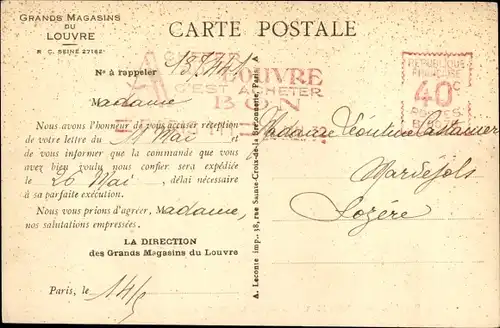 GRANDS MAGASINS
DU
LOUVRE
R. C. SEINE 27162
CARTE POSTALE
N° à rappeler
LOUVRE
C'EST ACHETER
BON
RÉPUBLIQUE
FRANÇAISE
40c
POSTES
Madame
Nous avons l'honneur de vous accuser réception
de votre lettre du 11 Mai et
de vous informer que la commande que vous
avez bien voulu nous confier sera expédiée
le 20 Mai, délai nécessaire
à sa parfaite exécution.
Nous vous prions d'agréer, Madame,
nos salutations empressées.
LA DIRECTION
des Grands Magasins du Louvre
Paris, le 14/5
A. Leconte imp., 38, rue Sainte-Croix-de-la-Bretonnerie, Paris. A
Madame
Mardejols
Lozère